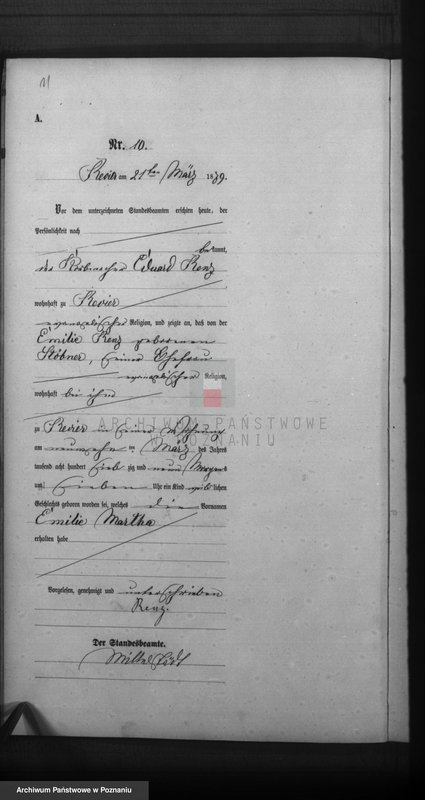 11
A.
Nr. 10.
Revier am 21ten März 1879.
Vor dem unterzeichneten Standesbeamten erschien heute, der
Persönlichkeit nach
bekannt,
der Korbmacher Eduard Renz
wohnhaft zu Revier
evangelischer Religion, und zeigte an, daß von der
Emilie Renz geborenen
Stöbner, seiner Ehefrau
evangelischer Religion,
wohnhaft bei ihm
ARCHIWUM PAŃSTWOWE
W POZNANIU
zu Revier in seiner Wohnung
am neunzehnten März des Jahres
tausend acht hundert siebzig und neun Morgens
um sieben Uhr ein Kind weiblichen
Geschlechts geboren worden sei, welches die Vornamen
Emilie Martha
erhalten habe
Vorgelesen, genehmigt und unterschrieben
Renz.
Der Standesbeamte.
Archiwum Państwowe w Poznaniu